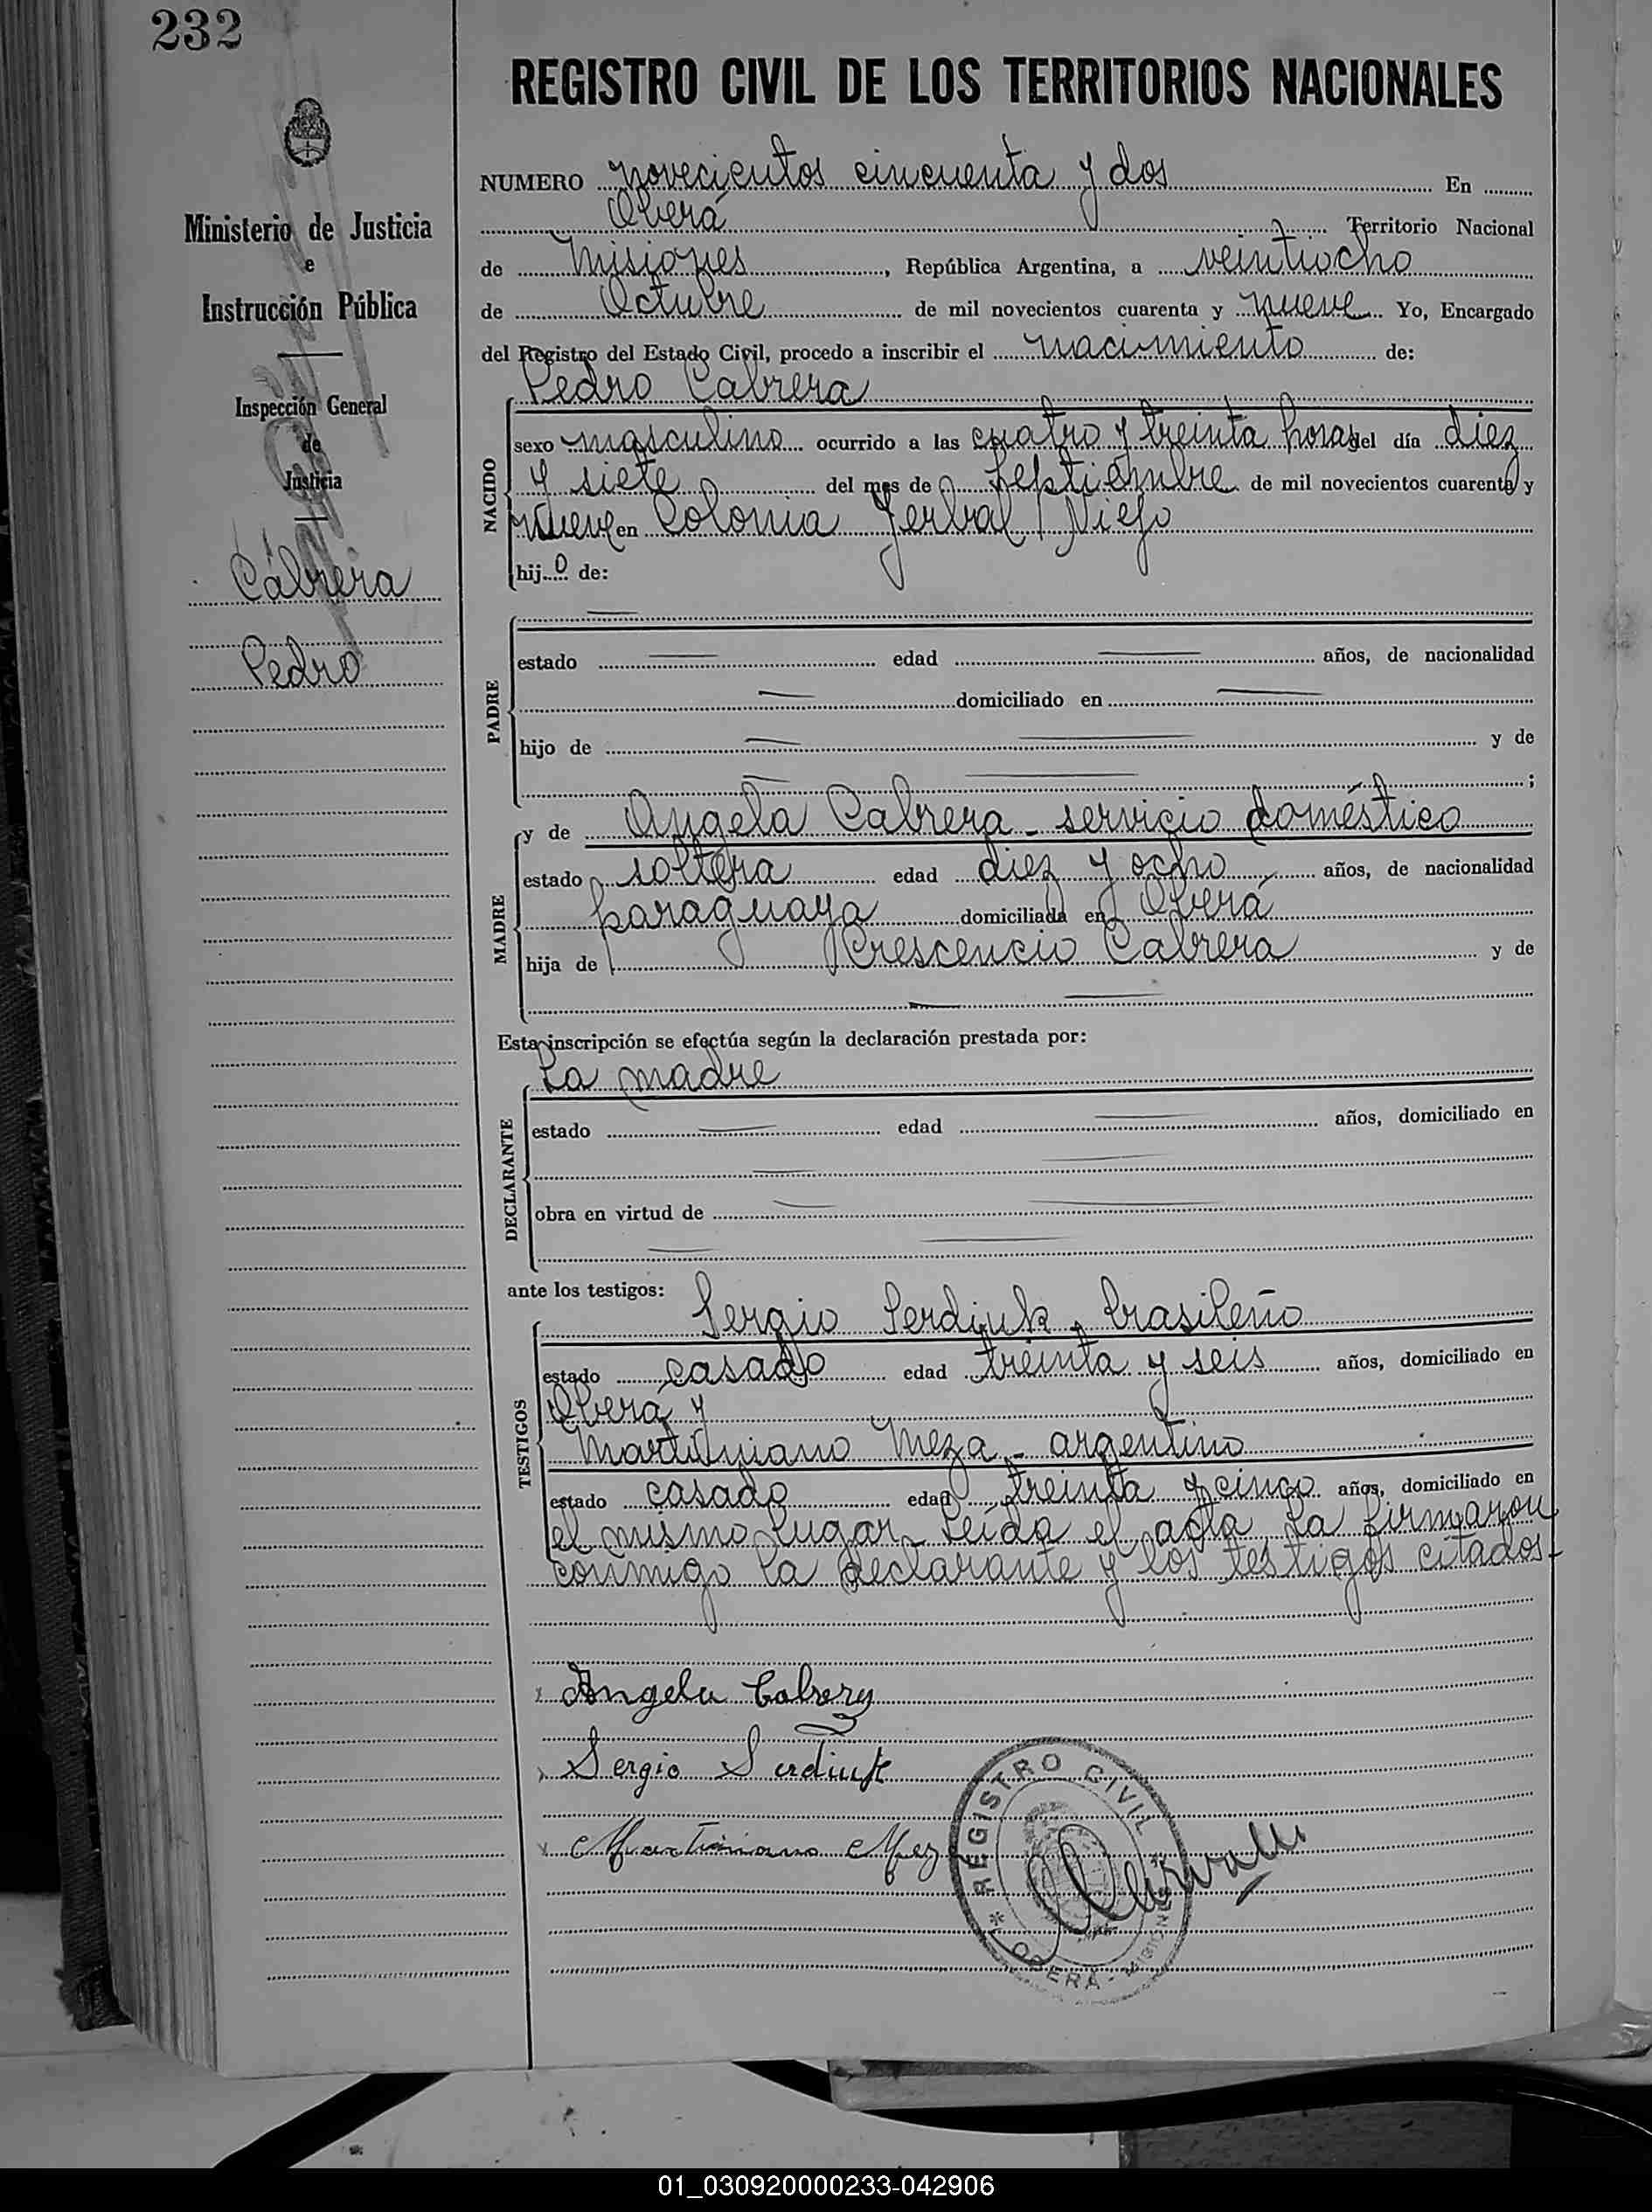 232
REGISTRO CIVIL DE LOS TERRITORIOS NACIONALES
NUMERO novecientos cincuenta y dos En
Oberá Territorio Nacional
de Misiones, República Argentina, a veintiocho
de Octubre de mil novecientos cuarenta y nueve Yo, Encargado
del Registro del Estado Civil, procedo a inscribir el nacimiento de:
Pedro Cabrera
sexo masculino ocurrido a las cuatro y treinta horas del día diez
y siete del mes de Septiembre de mil novecientos cuarenta y
nueve en Colonia Yerbal Viejo
hijo de:
NACIDO
Ministerio de Justicia
e
Instrucción Pública
Inspección General
de
Justicia
Cabrera
Pedro
PADRE
estado edad años, de nacionalidad
domiciliado en
hijo de y de
;
MADRE
y de Angela Cabrera - servicio doméstico
estado soltera edad diez y ocho años, de nacionalidad
paraguaya domiciliada en Oberá
hija de Crescencio Cabrera y de
Esta inscripción se efectúa según la declaración prestada por:
La madre
DECLARANTE
estado edad años, domiciliado en
obra en virtud de
ante los testigos:
TESTIGOS
Sergio Serdiuk, brasileño
estado casado edad treinta y seis años, domiciliado en
Oberá y
Martiniano Meza - argentino
estado casado edad treinta y cinco años, domiciliado en
el mismo lugar. Leída el acta la firmaron
conmigo la declarante y los testigos citados.-
Angela Cabrera
Sergio Serdiuk
Martiniano Meza
REGISTRO CIVIL
* OBERÁ - MISIONES *
01_030920000233-042906